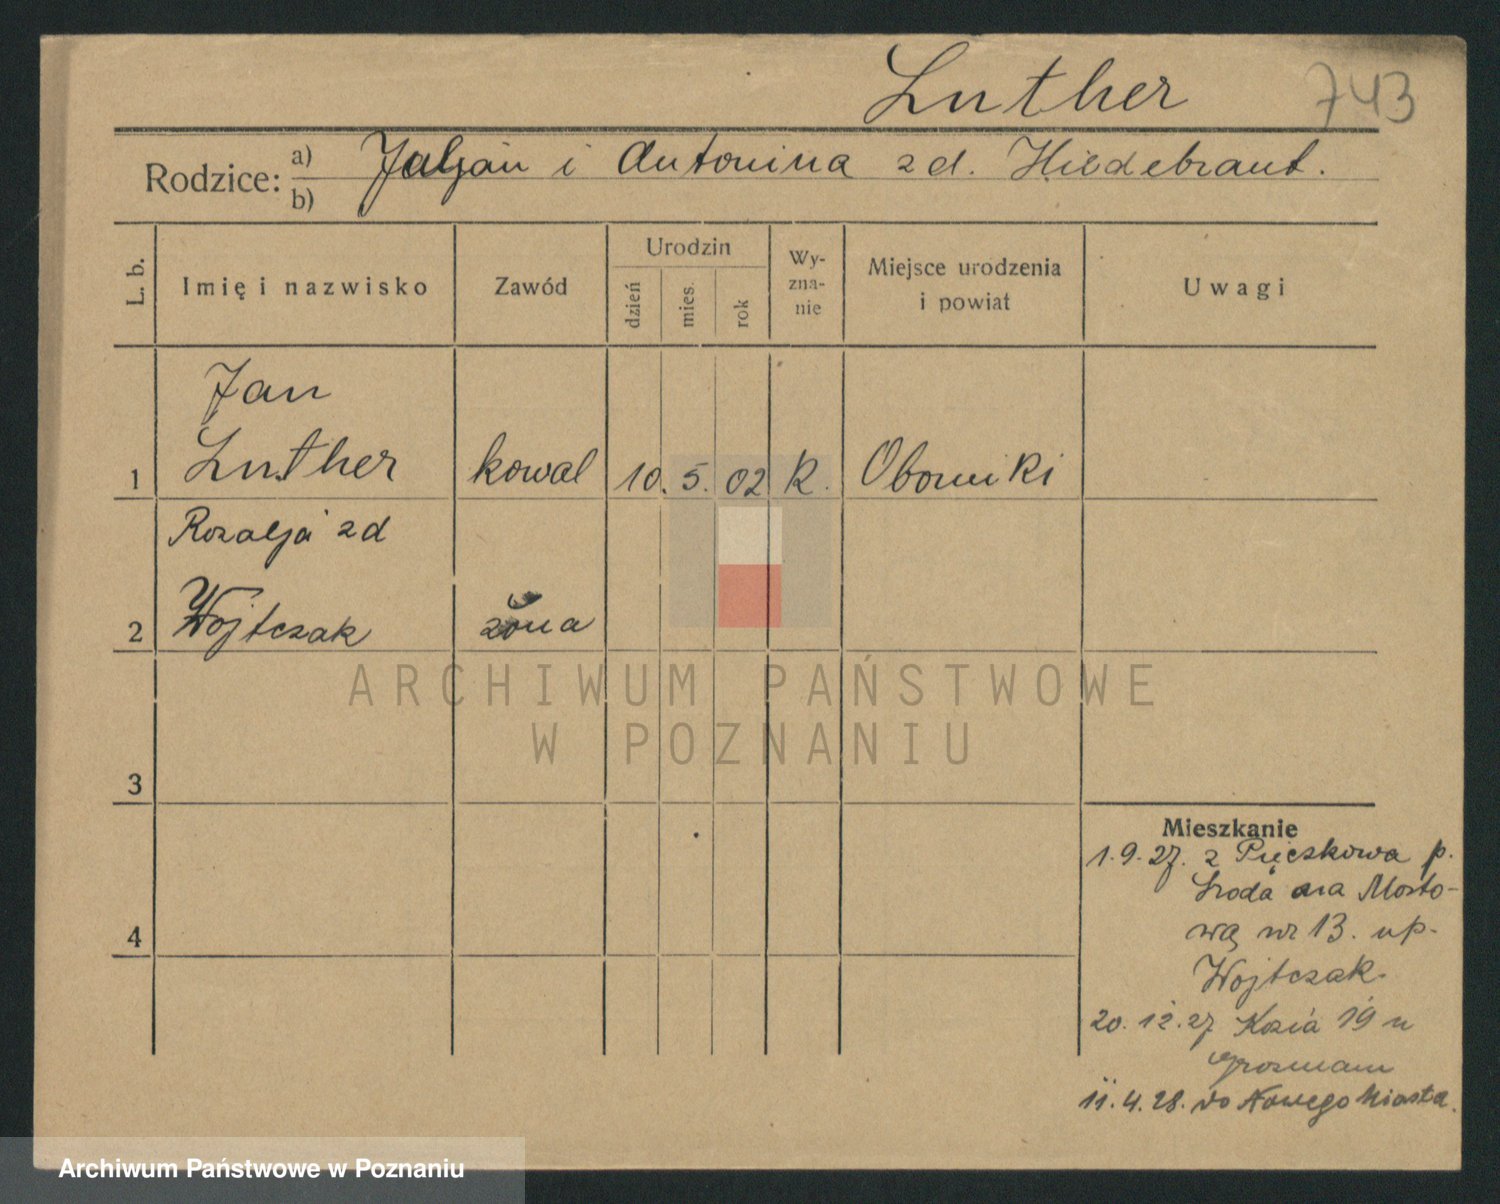 Luther 743
Rodzice: a) i Antonina zd. Hildebrant.
b)
L. b.
Imię i nazwisko
Zawód
Urodzin
dzień
mies.
rok
Wy-
zna-
nie
Miejsce urodzenia
i powiat
Uwagi
Jan
1 Luther kowal 10. 5. 02 k. Oborniki
Rozalja zd
2 Wojtczak żona
3
4
Mieszkanie
1.9.27. z Pięczkowa p.
Środa na Mosto-
wą nr 13. u p.
Wojtczak.
20.12.27 Kozia 19 u
11.4.28. do Nowego Miasta.
ARCHIWUM PAŃSTWOWE
W POZNANIU
Archiwum Państwowe w Poznaniu